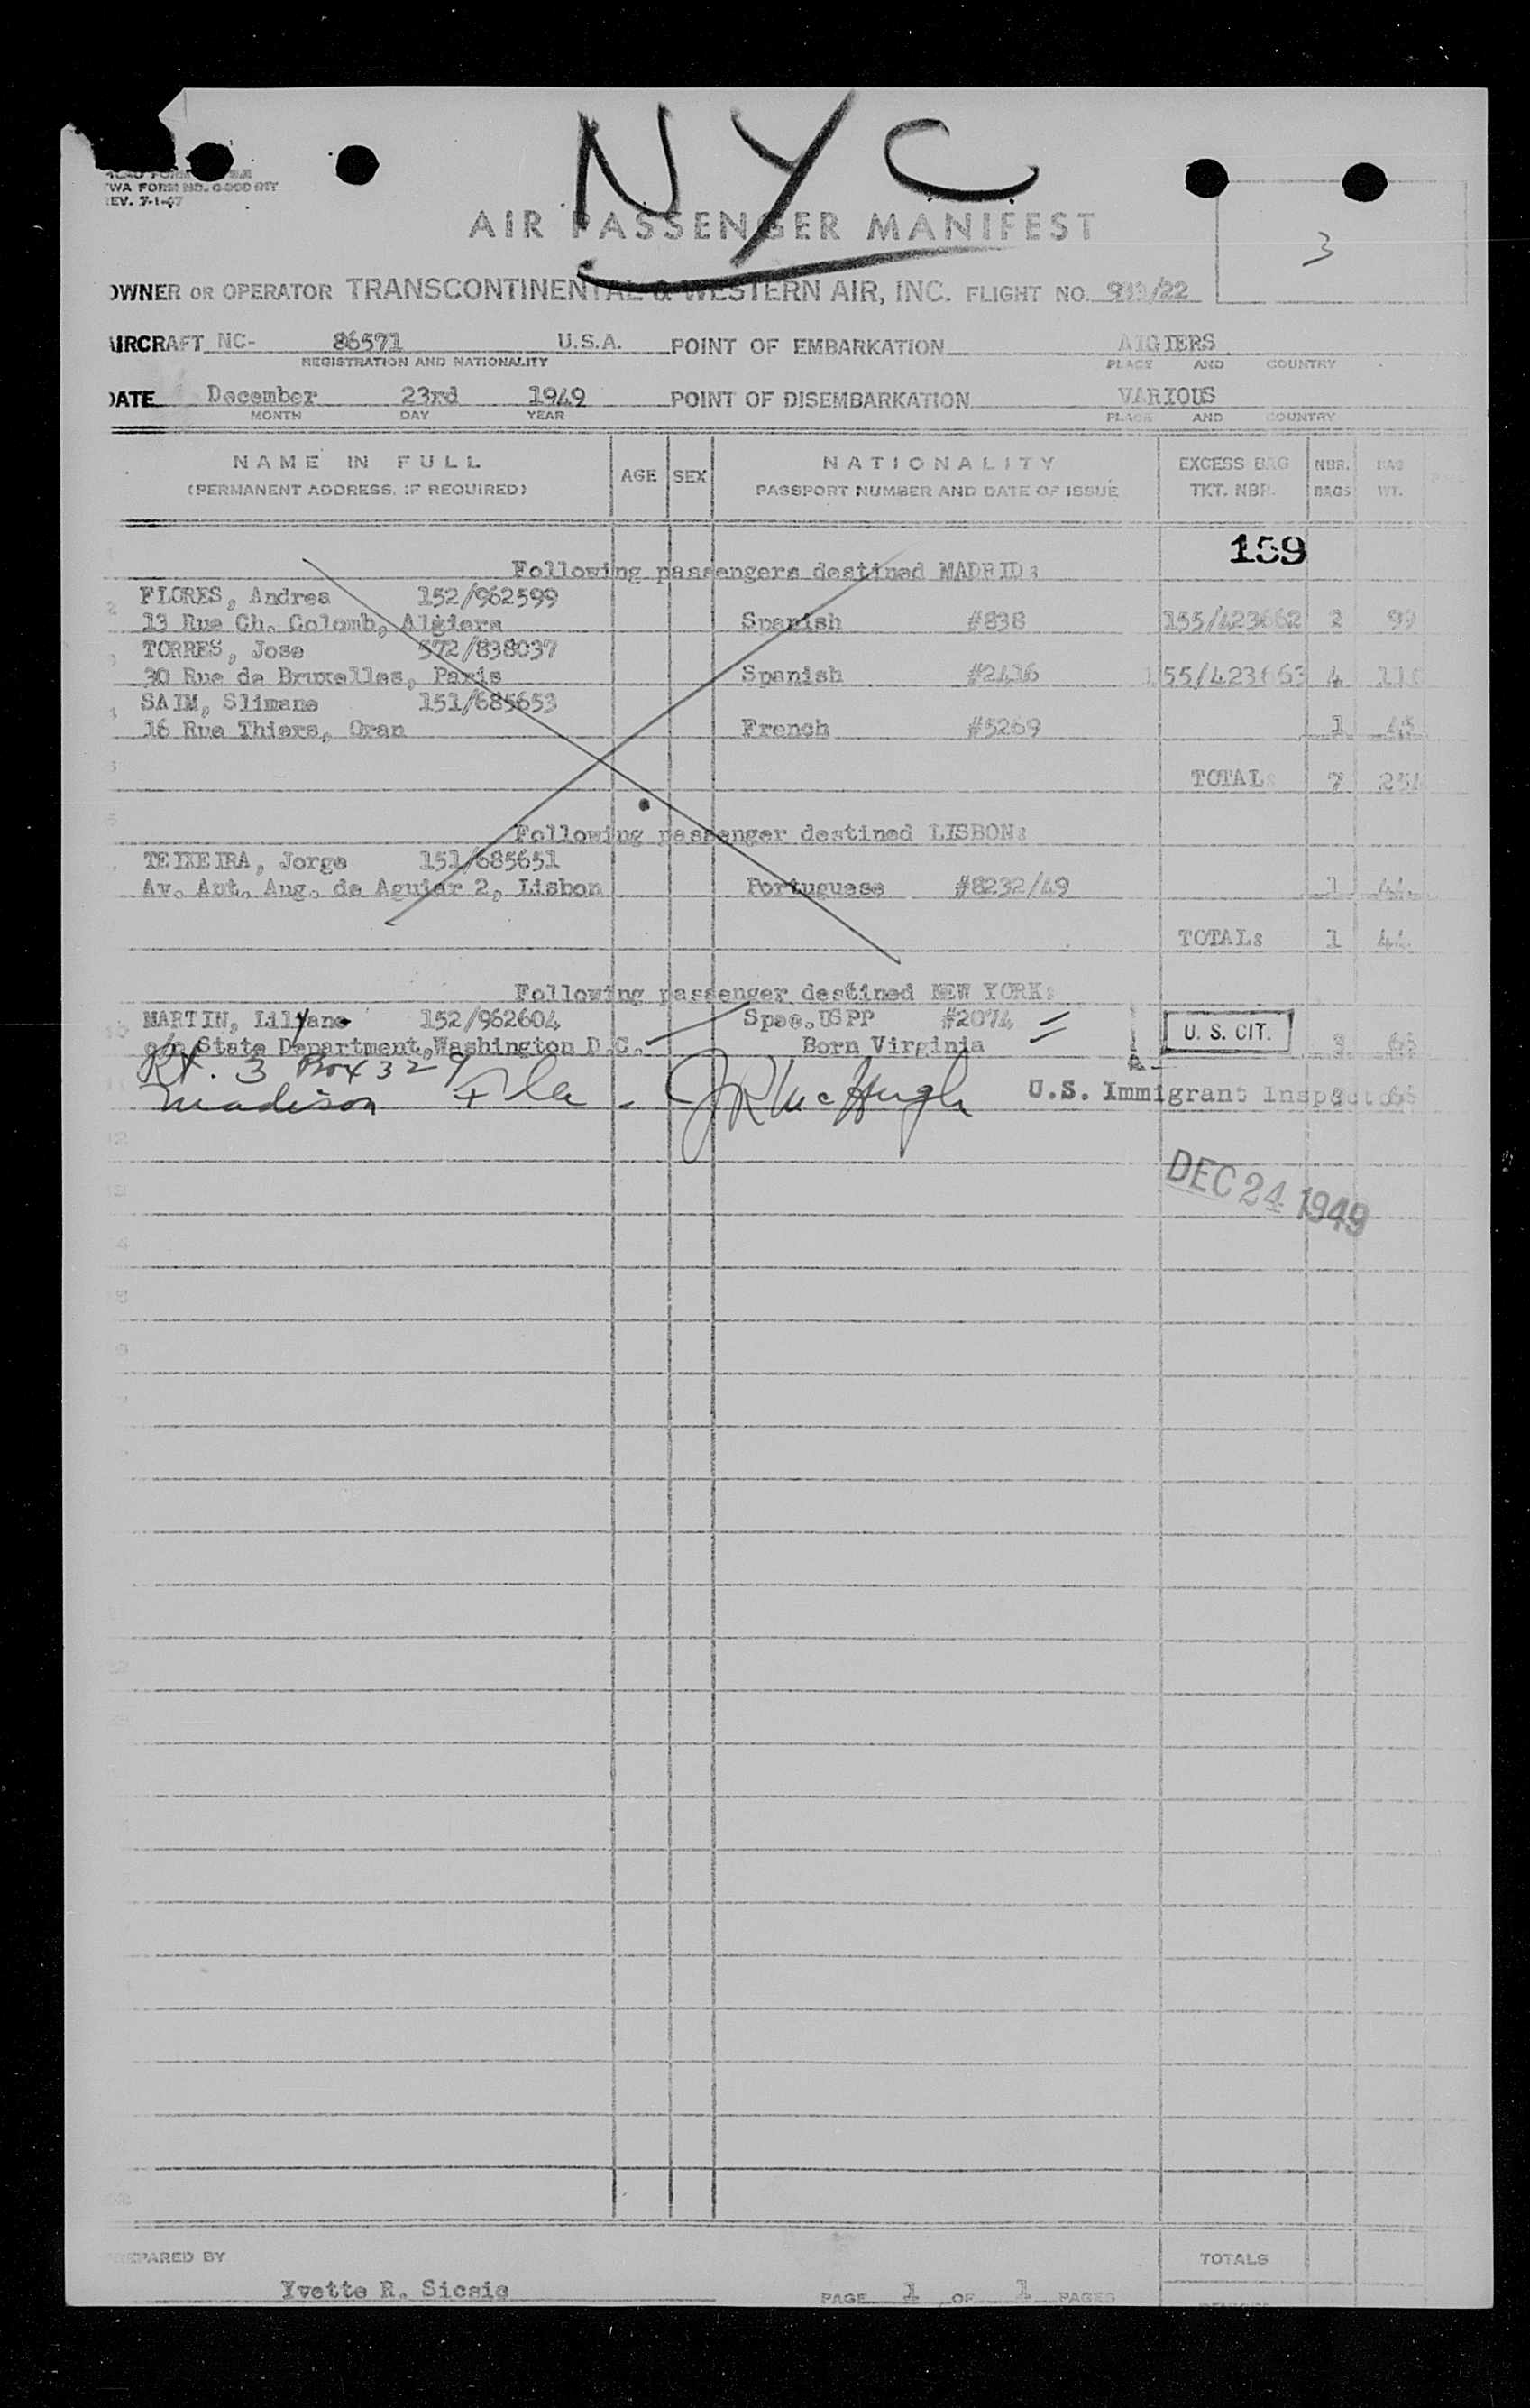 NYC
TWA FORM NO.
EV. 7-1-47
AIR PASSENGER MANIFEST
3
OWNER OR OPERATOR TRANSCONTINENTAL & WESTERN AIR, INC. FLIGHT NO. /22
AIRCRAFT NC- 86571 U.S.A. POINT OF EMBARKATION ALGIERS
REGISTRATION AND NATIONALITY PLACE AND COUNTRY
DATE December 23rd 1949 POINT OF DISEMBARKATION VARIOUS
MONTH DAY YEAR PLACE AND COUNTRY
NAME IN FULL AGE SEX NATIONALITY EXCESS BAG NBR. BAG
(PERMANENT ADDRESS, IF REQUIRED) PASSPORT NUMBER AND DATE OF ISSUE TKT. NBR. BAGS WT.
159
Following passengers destined MADRID:
FLORES, Andres 152/962599
13 Rue Ch. Colomb, Algiers Spanish #838 155/423662 2 99
TORRES, Jose 572/838037
30 Rue de Bruxelles, Paris Spanish #2416 155/423663 4 110
SAIM, Slimane 151/685653
16 Rue Thiers, Oran French #5269 1 45
TOTAL: 7 254
Following passenger destined LISBON:
TEIXEIRA, Jorge 151/685651
Av. Ant. Aug. de Aguiar 2, Lisbon Portuguese #8232/49 1 44
TOTAL: 1 44
Following passenger destined NEW YORK:
MARTIN, Lilyane 152/962604 Spec. USPP #2074
c/o State Department, Washington D.C. Born Virginia U. S. CIT. 3 65
Rt. 3 Box 329
Madison Fla. JR McHugh U.S. Immigrant Inspector
DEC 24 1949
PREPARED BY TOTALS
Yvette R. Sicsic PAGE 1 OF 1 PAGES